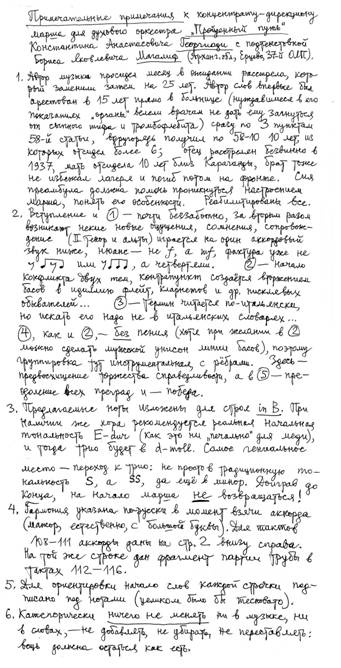 Примечательные примечания к концентрату-дирекциону
марша для духового оркестра „Пройденный путь"
Константина Анастасовича Георгиади с подтекстовкой
Бориса Яковлевича Магалиф (Арханг. обл., Ерцево, 37-й ОЛП).
1. Автор музыки просидел месяц в ожидании расстрела, кото-
рый заменили затем на 25 лет. Автор слов впервые был
арестован в 15 лет прямо в больнице (нуждавшиеся в его
показаниях „органы" велели врачам не дать ему загнуться
от сыпного тифа и тромбофлебита) сразу по 3 пунктам
58-й статьи, вторую получил по 58-10 10 лет, из
которых отсидел более 6; отец расстрелян безвинно в
1937, мать отсидела 10 лет близ Караганды, брат тоже
не избежал лагеря и погиб потом на фронте. Сия
преамбула должна помочь проникнуться настроением
марша, понять его особенности. Реабилитированы все.
2. Вступление и ① – почти беззаботно, за вторым разом
возникают некие новые ощущения, сомнения, сопровож-
дение (II теноры и альты) играется на один аккордовый
звук ниже, нюанс – не f, а mf, фактура уже не
или , а четвертями. ② – начало
конфликта двух тем, контрапункт создается вторжением
басов в идиллию флейт, кларнетов и др. писклявых
обывателей... ③ – термин читается по-итальянски,
но искать его надо не в итальянских словарях...
④, как и ②, – без пения (хотя при желании в ②
можно сделать мужской унисон линии басов), поэтому
группировка тут инструментальная, с рёбрами. Здесь –
предвосхищение торжества справедливости, а в ⑤ – пре-
одоление всех преград и – победа.
3. Предлагаемые ноты изложены для строя in B. При
наличии же хора рекомендуется реальная начальная
тональность E-dur (как это ни „печально" для меди),
и тогда трио будет в d-moll. Самое гениальное
место – переход к трио: не просто в традиционную то-
нальность S, а SS, да ещё в минор. Доиграв до
конца, на начало марша не возвращаться!
4. Гармония указана по-русски в момент взятия аккорда
(мажор, естественно, с большой буквы). Для тактов
108-111 аккорды даны на стр. 2 внизу справа.
На той же строке дан фрагмент партии трубы в
тактах 112-116.
5. Для ориентировки начало слов каждой строчки под-
писано под нотами (целиком было бы тесновато).
6. Категорически ничего не менять ни в музыке, ни
в словах, – не добавлять, не убирать, не переставлять:
вещь должна остаться как есть.